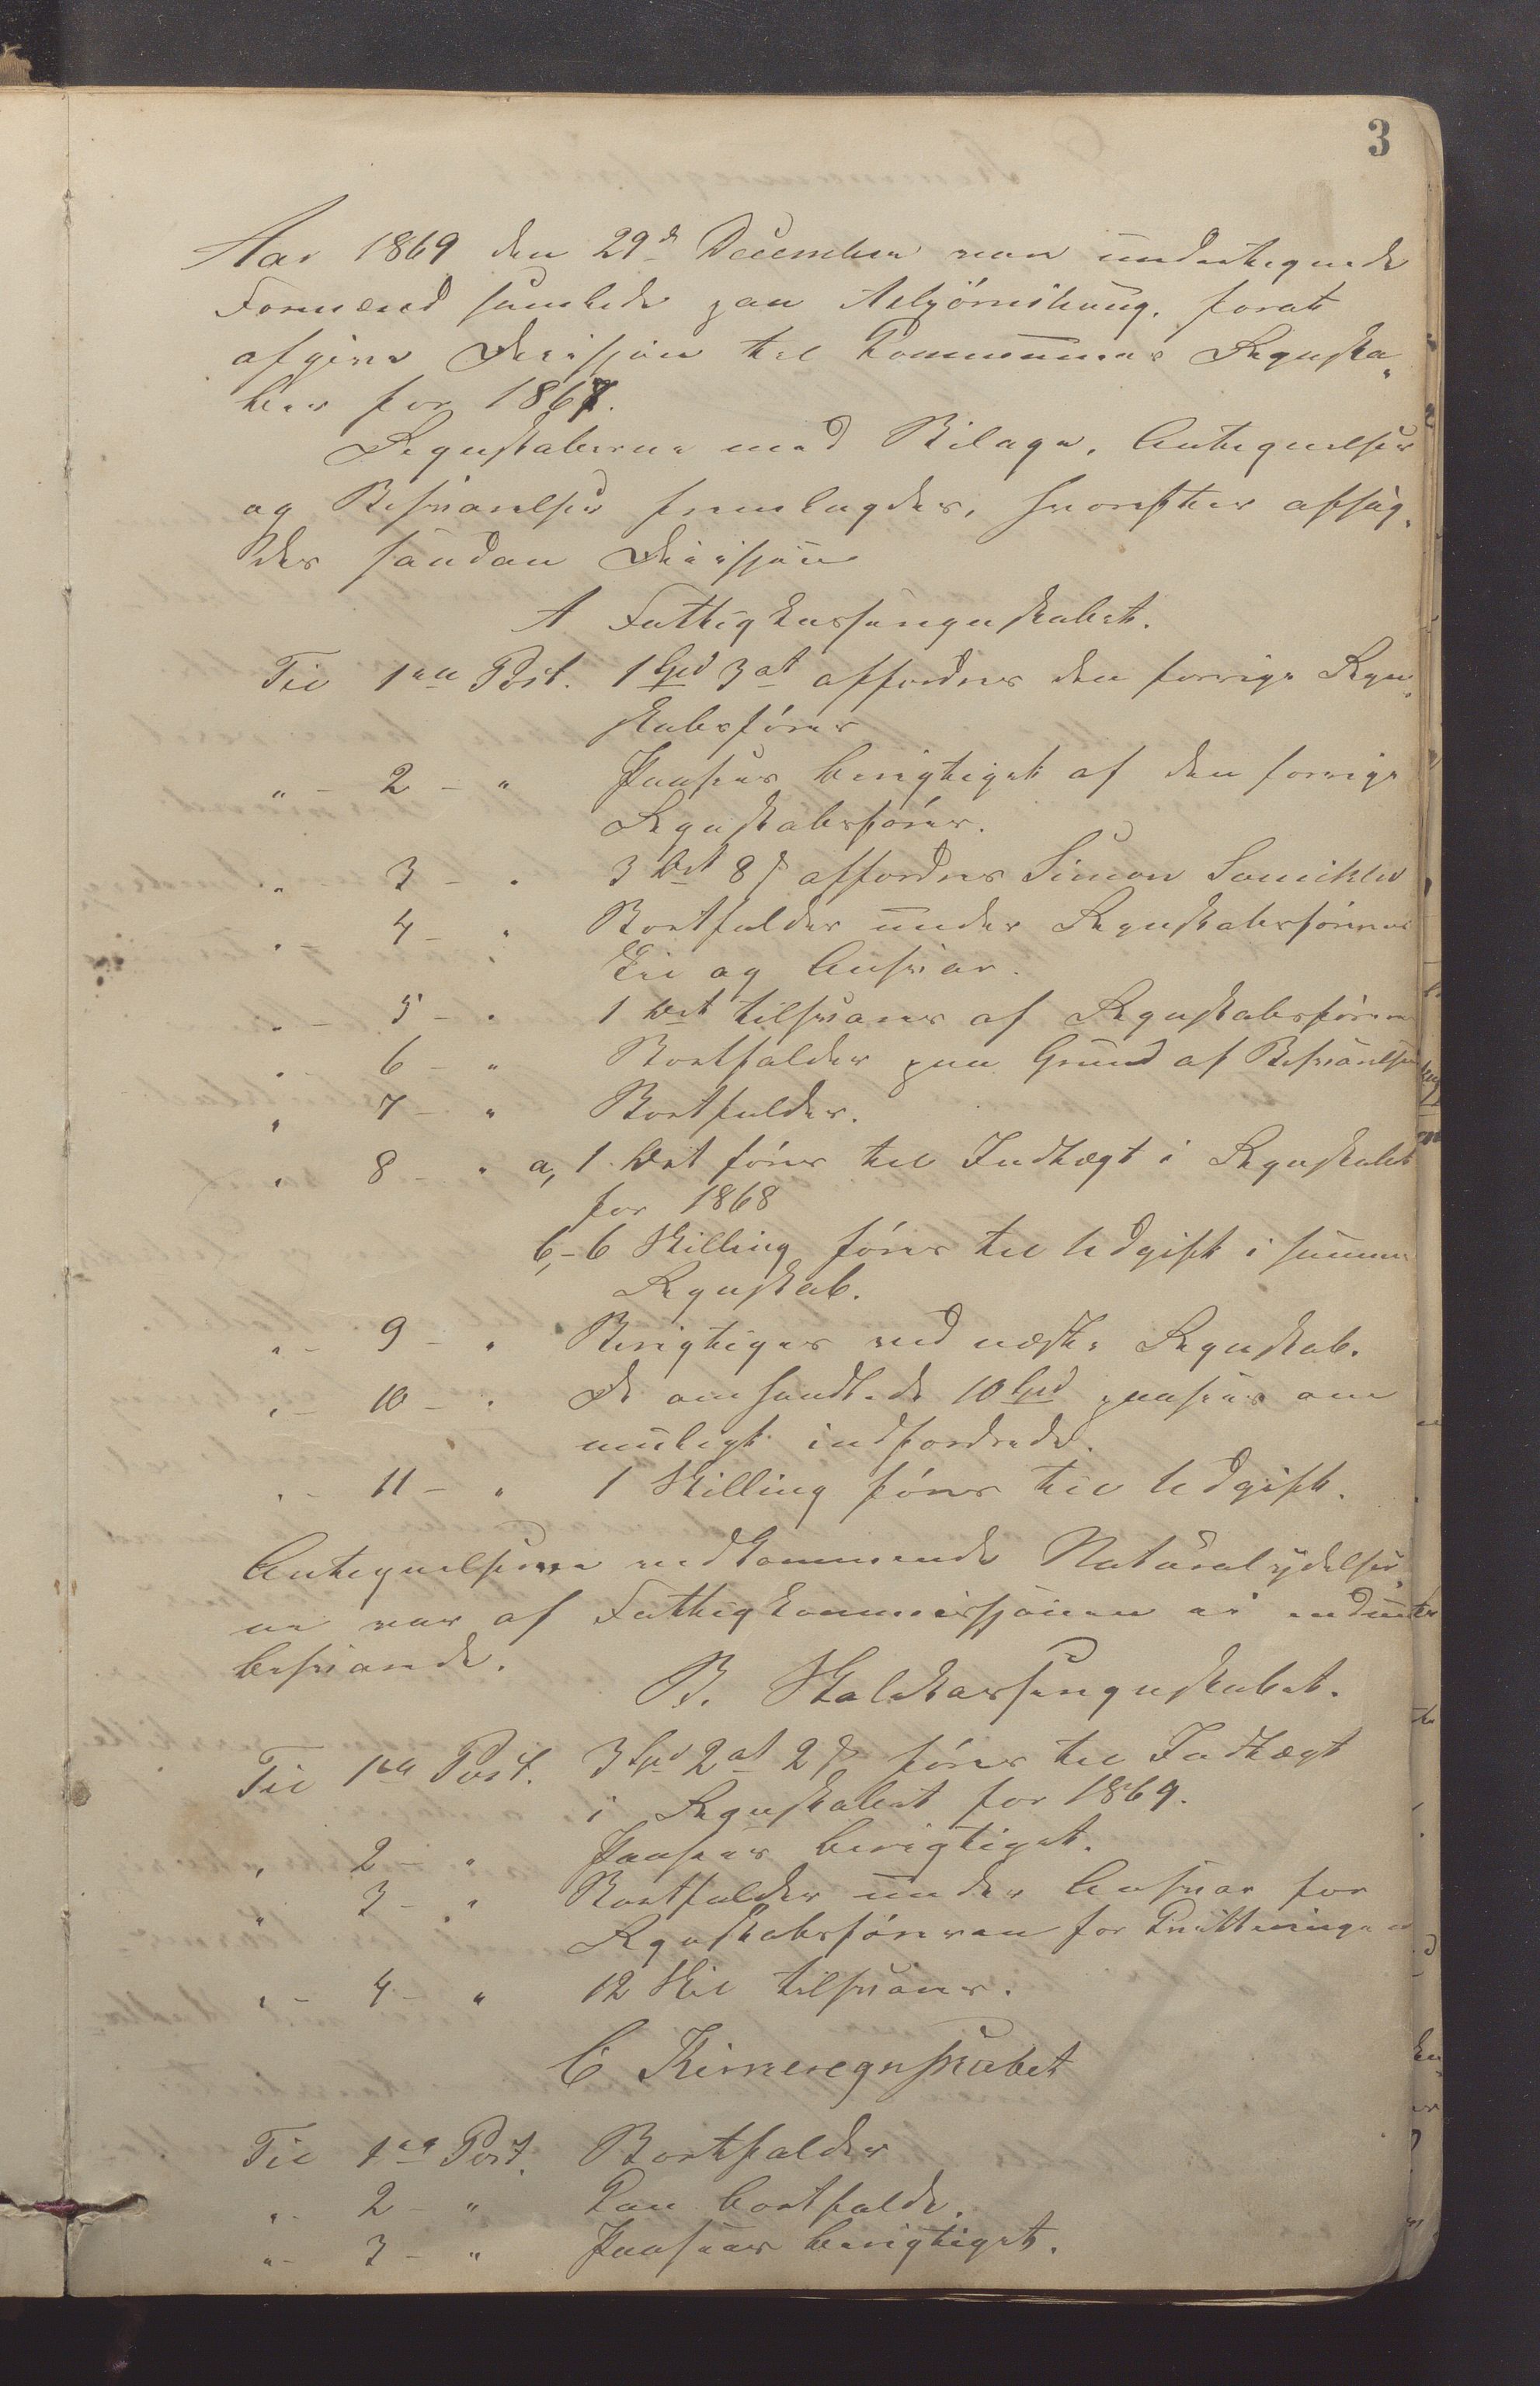 3
Aar 1869 den 29de December var undertegnede
Formænd samlede paa Asbjörnihaug, forat
afgive Decisjon til Kommunens Regnska„
ber for 1867.
Regnskaberne med Bilage, Antegnelser
og Besvarelser fremlagdes, hvorefter afsag„
des saadan Decisjon
A Fattigkasseregnskabet.
Til 1ste Post. 1 Spd 3 ort affordres den forrige Regn„
skabsfører
„ – 2 – „ Paasees berigtiget af den forrige
Regnskabsfører.
„ – 3 – „ 3 Ort 8 s affordres Simon
„ – 4 – „ Bortfalder under Regnskabsförerens
Til og Ansvar.
„ – 5 – „ 1 Ort tilsvares af Regnskabsföreren
„ – 6 – „ Bortfalder paa Grund af Besvarelsen
„ 7 – „ Bortfalder.
„ 8 – „ a, 1 Ort föres til Indtægt i Regnskabet
for 1868
b, – 6 Skilling föres til Udgift i samme
Regnskab.
„ – 9 – „ Berigtiges ved næste Regnskab.
„ – 10 – „ De omhandlede 10 Spd paasees om
muligt indfordrede.
„ – 11 – „ 1 Skilling föres til Udgift.
Antegnelserne vedkommende Naturalydelser„
ne var af Fattigkommissjonen ei endnu
besvarede.
B. Skolekasseregnskabet.
Til 1ste Post. 3 Spd 2 ort 2 s föres til Indtægt
i Regnskabet for 1869.
„ 2 – „ Paasees berigtiget.
„ 3 – „ Bortfalder under Ansvar for
Regnskabsföreren for Qvitteringen
„ – 4 – „ 12 Skil tilsvares.
C Kirkeregnskabet
Til 1ste Post. Bortfalder
„ – 2 – „ Kan bortfalde.
„ – 3 – „ Paasees berigtiget.